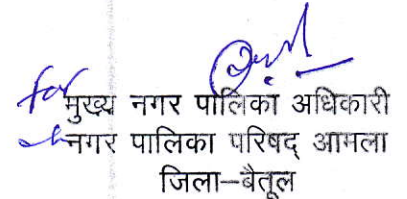 for मुख्य नगर पालिका अधिकारी
नगर पालिका परिषद् आमला
जिला–बैतूल